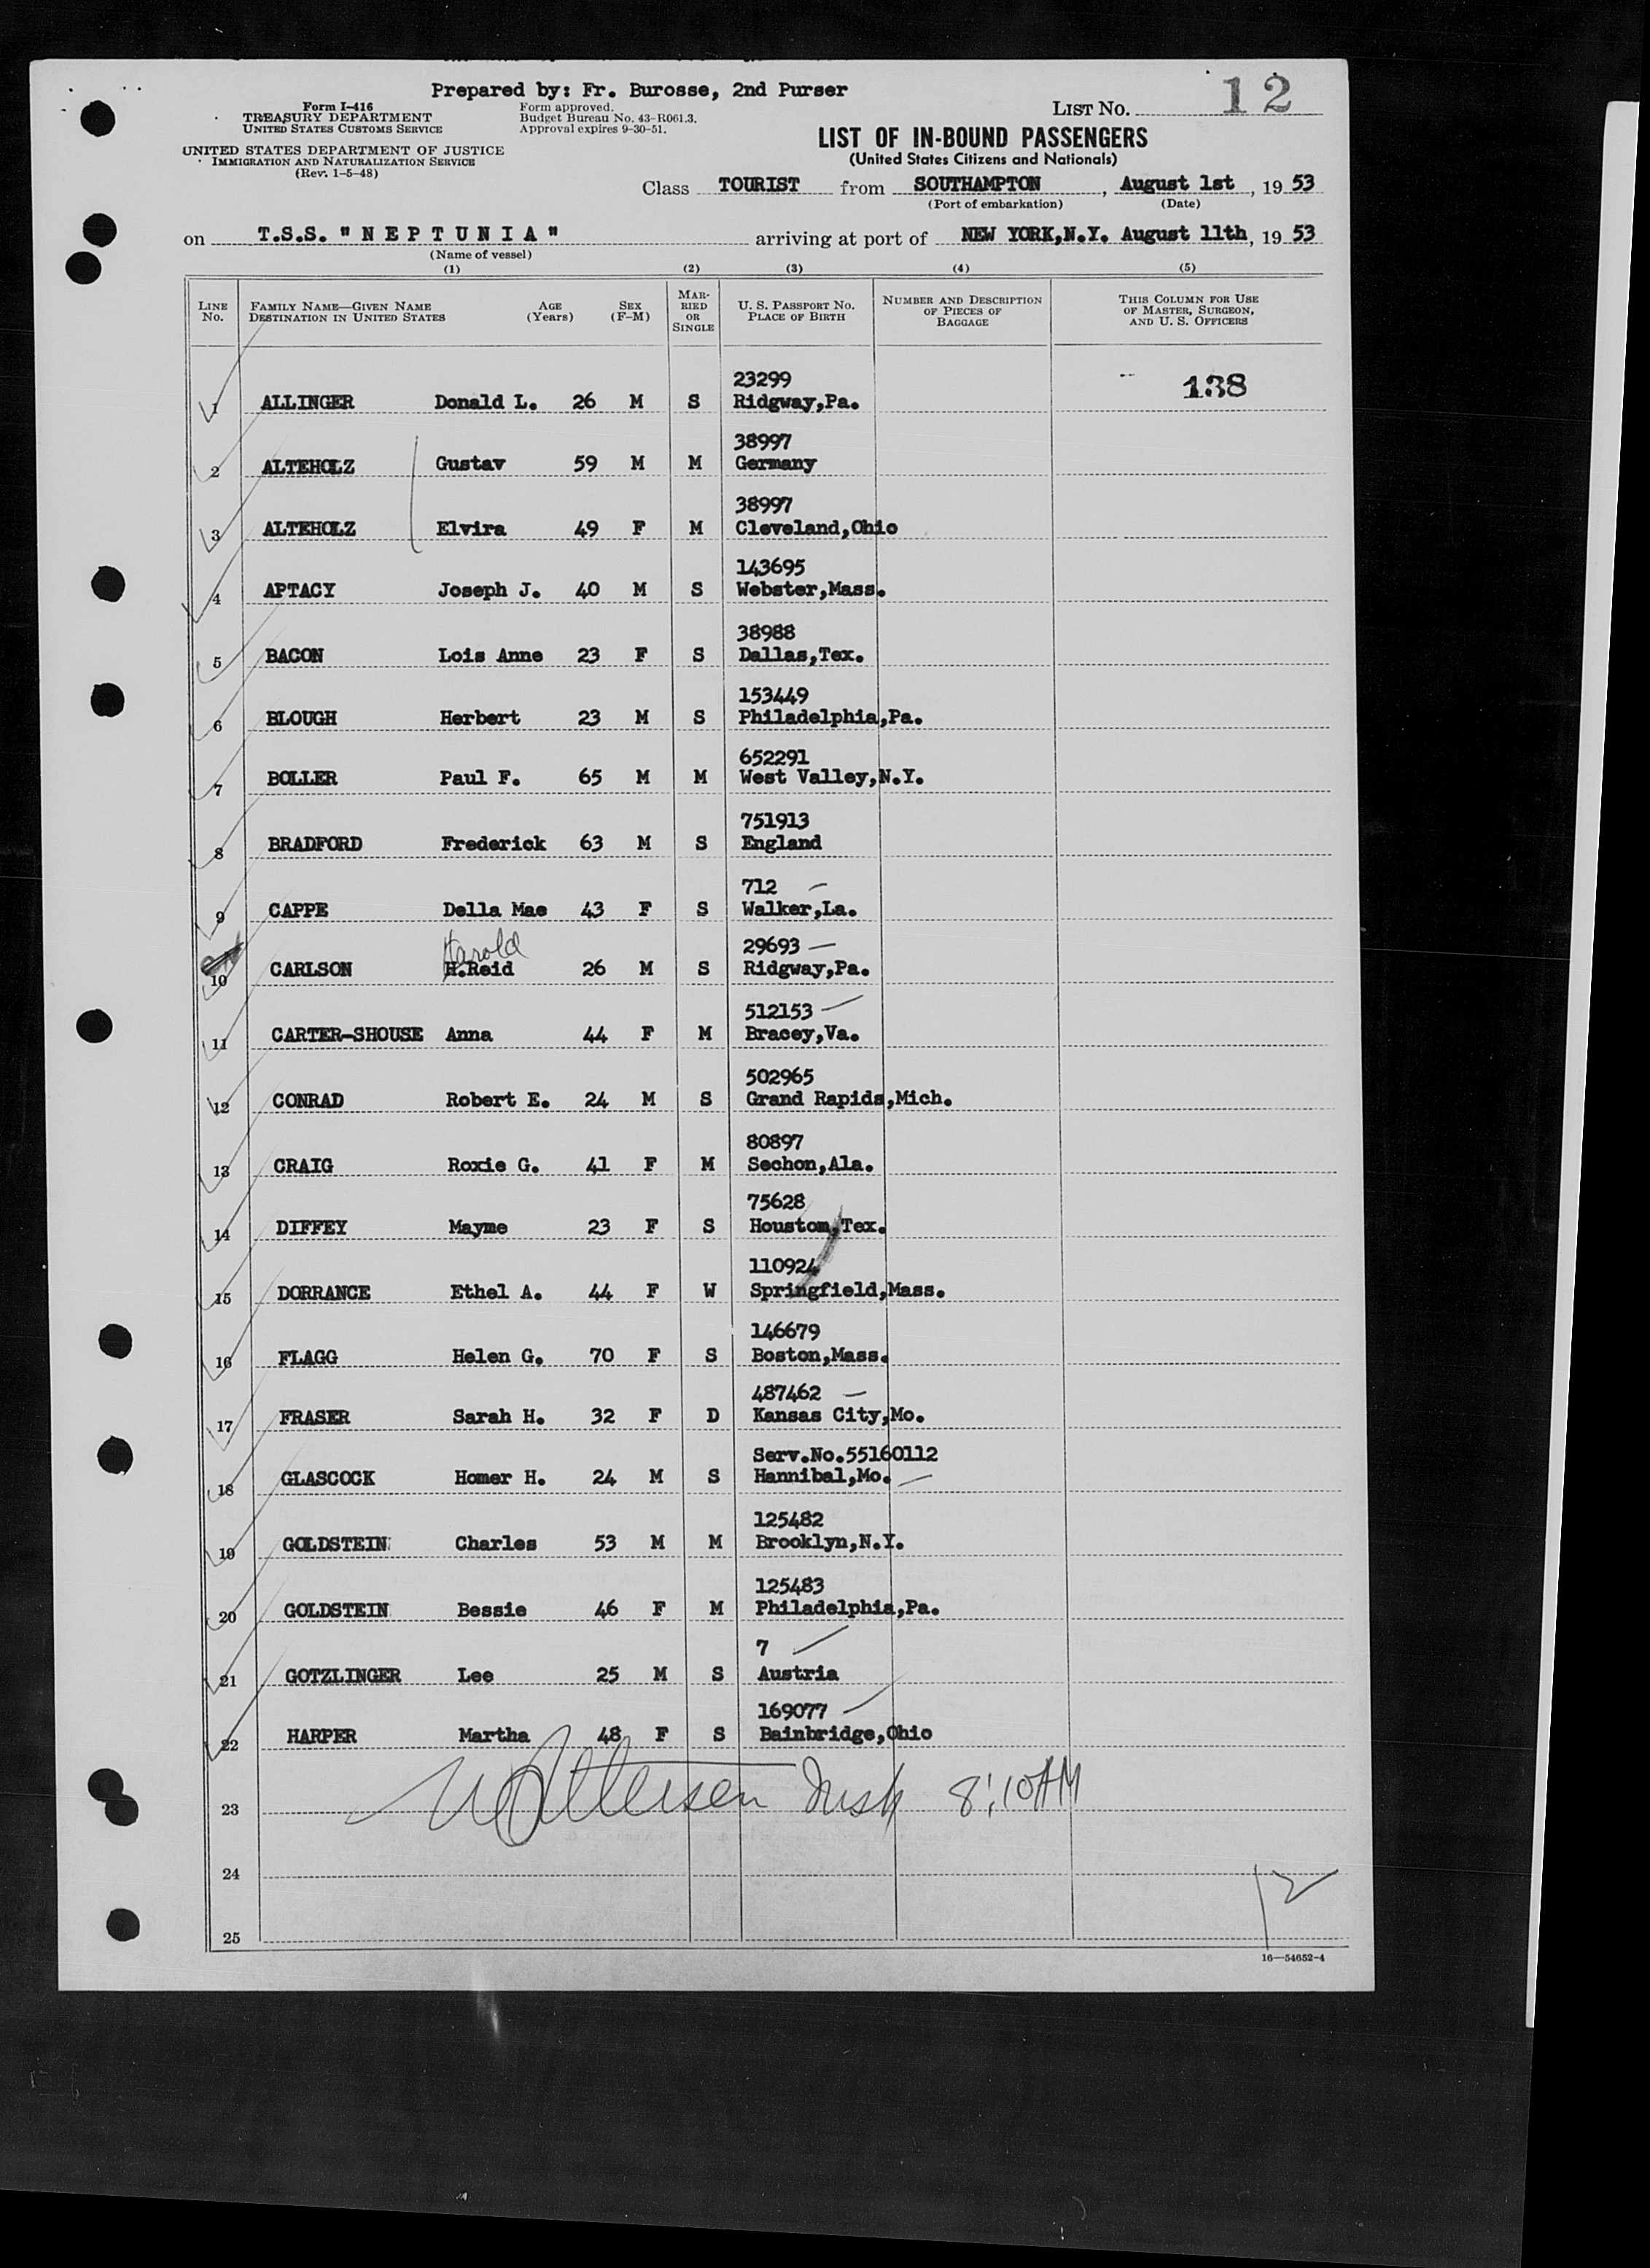 Prepared by: Fr. Burosse, 2nd Purser
Form I-416
TREASURY DEPARTMENT
UNITED STATES CUSTOMS SERVICE
UNITED STATES DEPARTMENT OF JUSTICE
IMMIGRATION AND NATURALIZATION SERVICE
(Rev. 1-5-48)
Form approved.
Budget Bureau No. 43-R061.3.
Approval expires 9-30-51.
LIST No. 12
LIST OF IN-BOUND PASSENGERS
(United States Citizens and Nationals)
Class TOURIST from SOUTHAMPTON, August 1st, 19 53
(Port of embarkation) (Date)
on T.S.S. "NEPTUNIA" arriving at port of NEW YORK,N.Y. August 11th, 19 53
(Name of vessel)
(1) (2) (3) (4) (5)
LINE No. FAMILY NAME—GIVEN NAME DESTINATION IN UNITED STATES AGE (Years) SEX (F-M) MARRIED OR SINGLE U. S. PASSPORT No. PLACE OF BIRTH NUMBER AND DESCRIPTION OF PIECES OF BAGGAGE THIS COLUMN FOR USE OF MASTER, SURGEON, AND U. S. OFFICERS
23299 138
1 ALLINGER Donald L. 26 M S Ridgway,Pa.
38997
2 ALTEHOLZ Gustav 59 M M Germany
38997
3 ALTEHOLZ Elvira 49 F M Cleveland,Ohio
143695
4 APTACY Joseph J. 40 M S Webster,Mass.
38988
5 BACON Lois Anne 23 F S Dallas,Tex.
153449
6 BLOUGH Herbert 23 M S Philadelphia,Pa.
652291
7 BOLLER Paul F. 65 M M West Valley,N.Y.
751913
8 BRADFORD Frederick 63 M S England
712
9 CAPPE Della Mae 43 F S Walker,La.
Harold 29693
10 CARLSON H.Reid 26 M S Ridgway,Pa.
512153
11 CARTER-SHOUSE Anna 44 F M Bracey,Va.
502965
12 CONRAD Robert E. 24 M S Grand Rapids,Mich.
80897
13 CRAIG Roxie G. 41 F M Sechon,Ala.
75628
14 DIFFEY Mayme 23 F S Houstom,Tex.
110924
15 DORRANCE Ethel A. 44 F W Springfield,Mass.
146679
16 FLAGG Helen G. 70 F S Boston,Mass.
487462
17 FRASER Sarah H. 32 F D Kansas City,Mo.
Serv.No.55160112
18 GLASCOCK Homer H. 24 M S Hannibal,Mo.
125482
19 GOLDSTEIN Charles 53 M M Brooklyn,N.Y.
125483
20 GOLDSTEIN Bessie 46 F M Philadelphia,Pa.
7
21 GOTZLINGER Lee 25 M S Austria
169077
22 HARPER Martha 48 F S Bainbridge,Ohio
23 8:10AM
24
12
25
16—54652-4